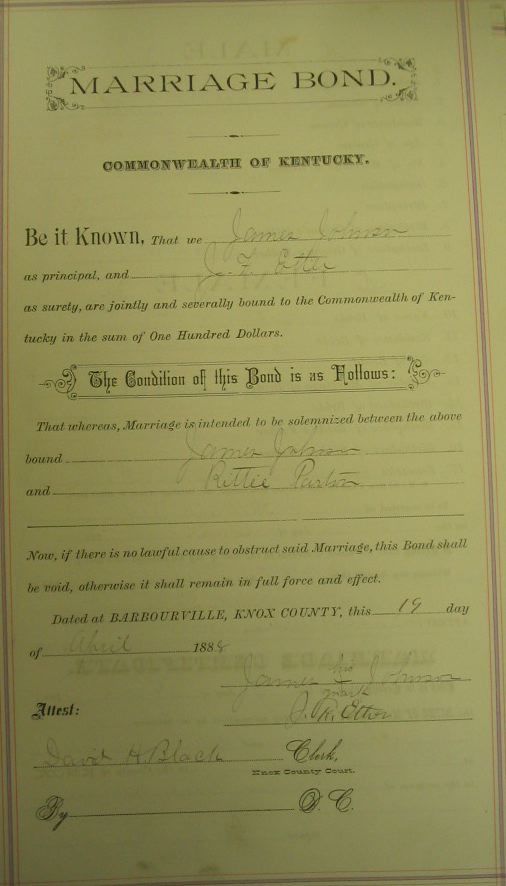 MARRIAGE BOND.
COMMONWEALTH OF KENTUCKY.
Be it Known, That we James Johnson
as principal, and J.
as surety, are jointly and severally bound to the Commonwealth of Ken-
tucky in the sum of One Hundred Dollars.
The Condition of this Bond is as Follows:
That whereas, Marriage is intended to be solemnized between the above
bound James Johnson
and Rittie Parton
Now, if there is no lawful cause to obstruct said Marriage, this Bond shall
be void, otherwise it shall remain in full force and effect.
Dated at BARBOURVILLE, KNOX COUNTY, this 19 day
of April 1888
his
James Johnson
mark
Attest:
David H. Black Clerk,
Knox County Court.
By D. C.